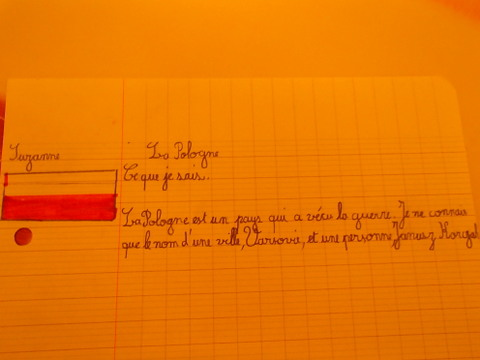 Suzanne
La Pologne
Ce que je sais.
La Pologne est un pays qui a vécu la guerre. Je ne connais
que le nom d'une ville, Varsovie, et une personne, Janusz